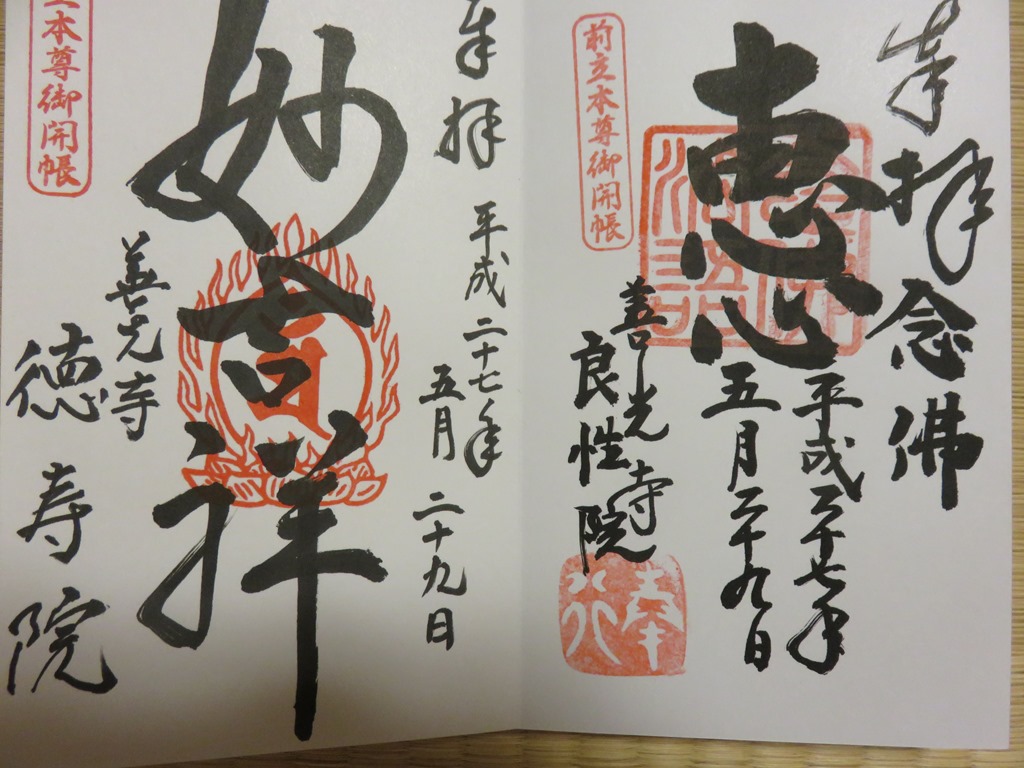 奉拝念佛
平成二十七年
五月二十九日
恵心
善光寺
良性院
奉行
前立本尊御開帳
奉拝
平成二十七年
五月二十九日
妙吉祥
善光寺
徳寿院
立本尊御開帳